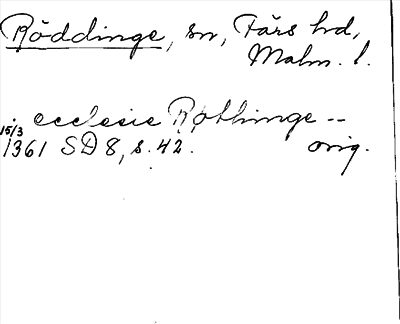 Röddinge, sn, Färs hd,
Malm. l.
ecclesie Röthinge --
15/3
1361 SD 8, s. 42. orig.